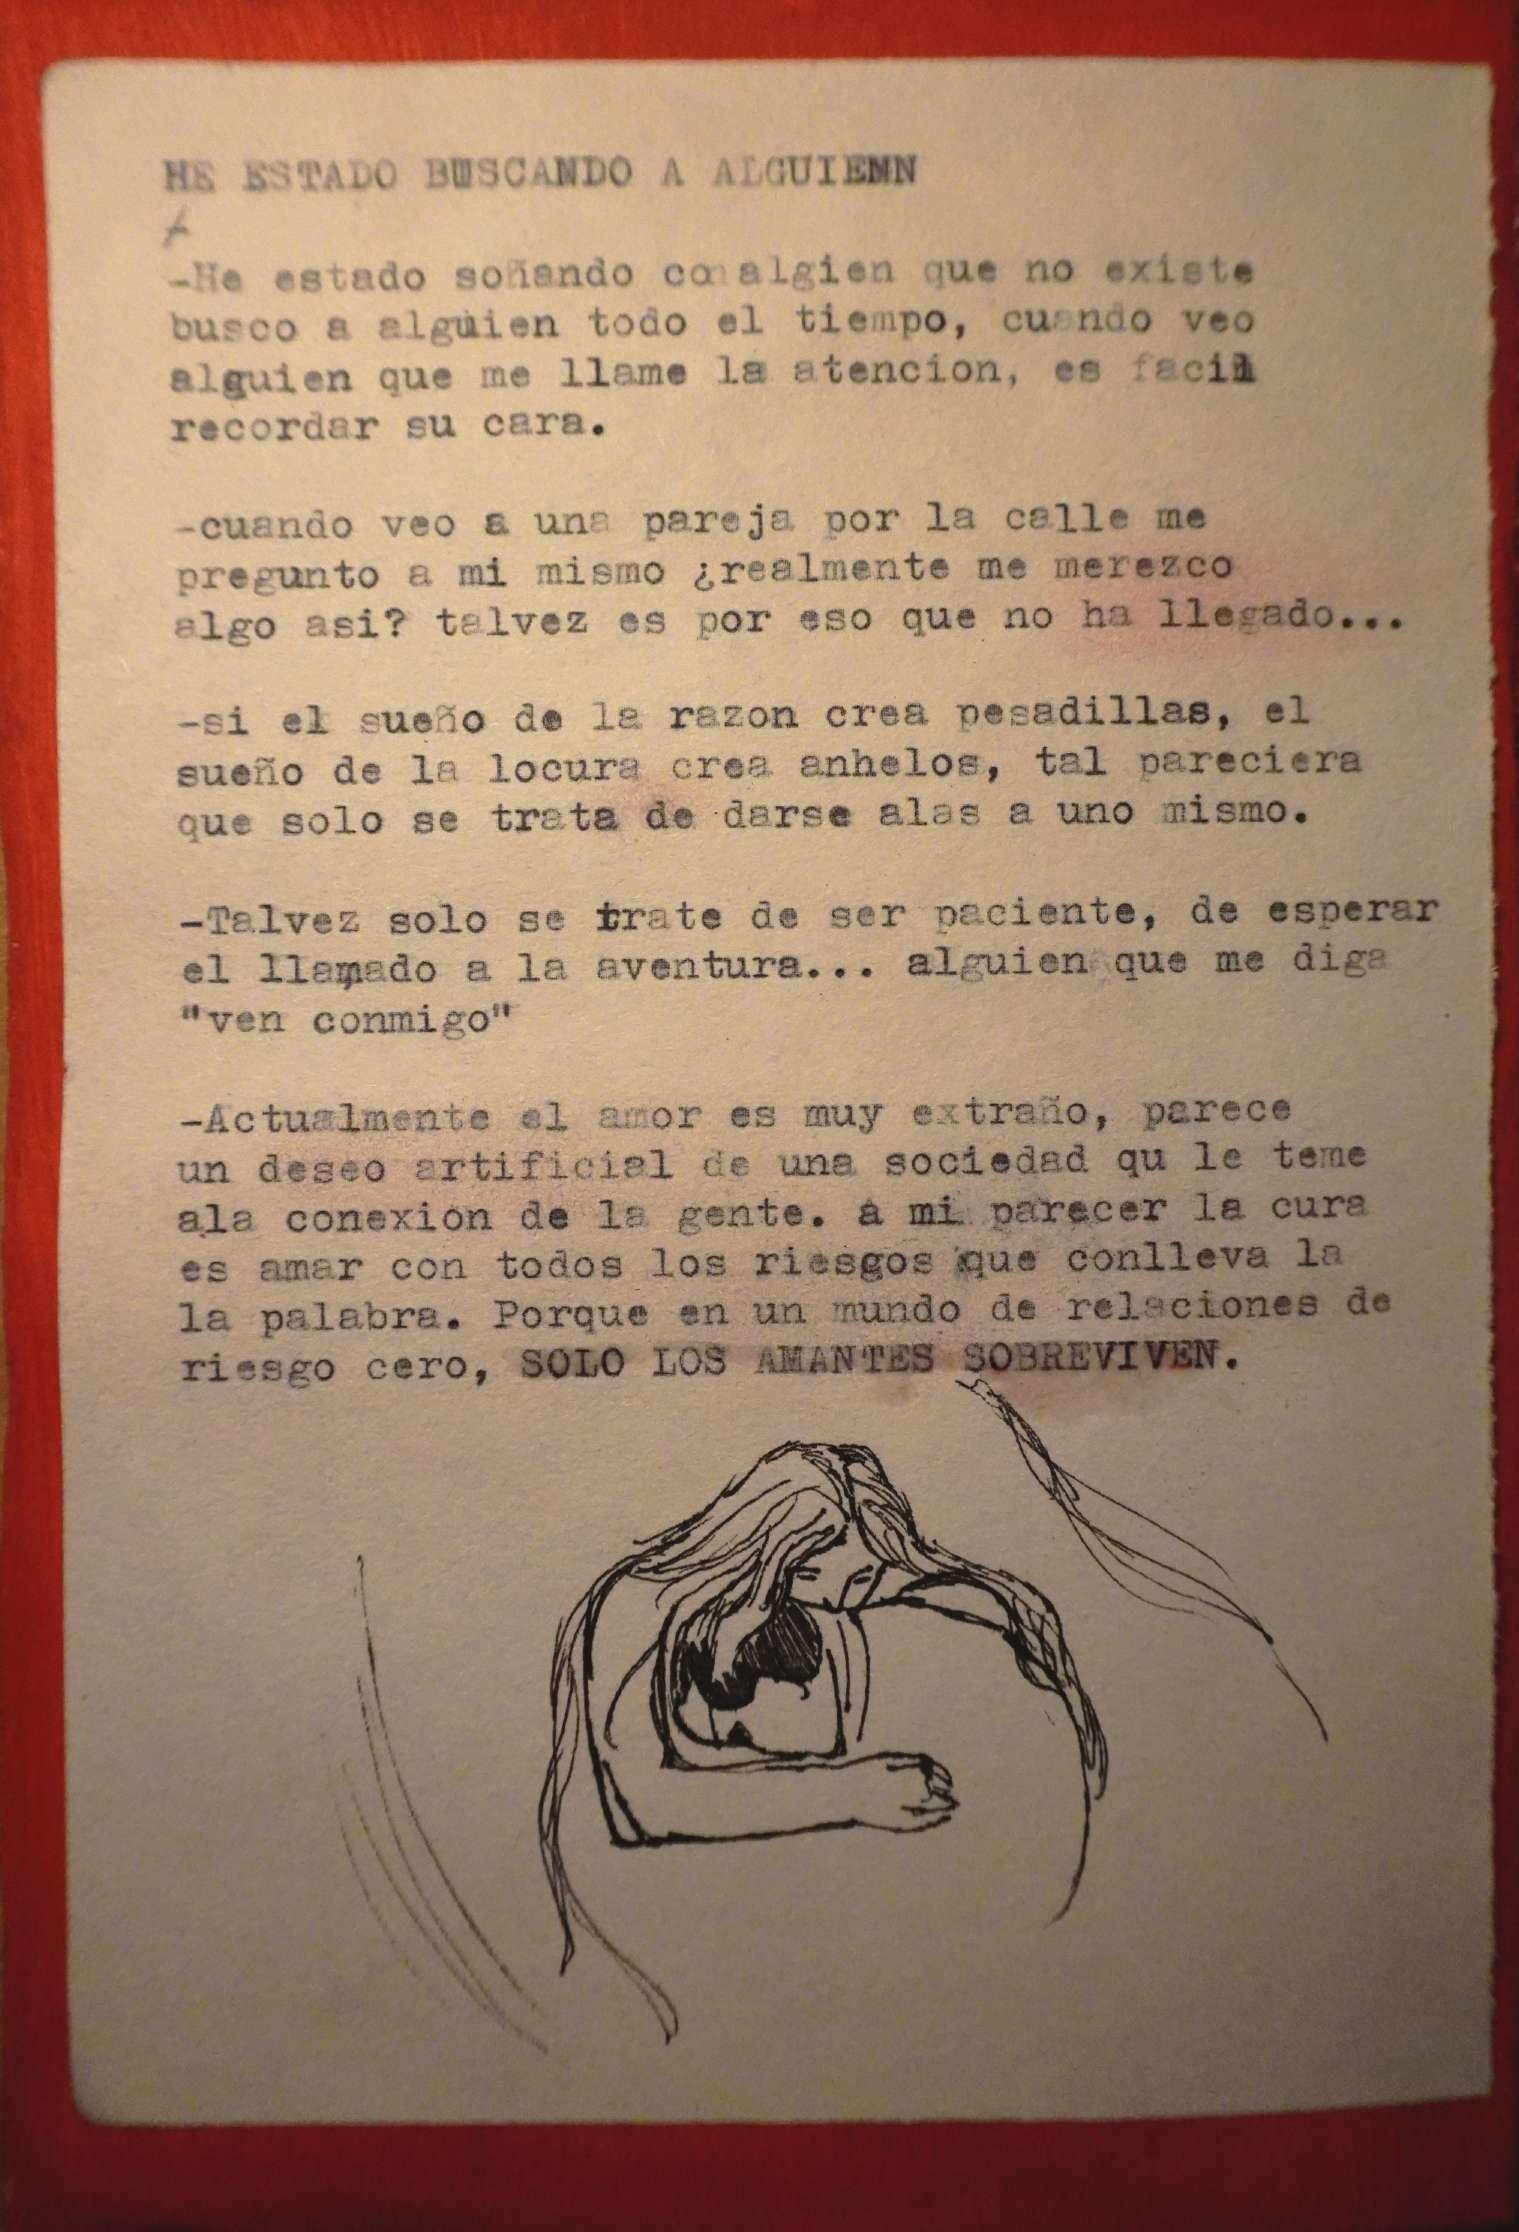 HE ESTADO BUSCANDO A ALGUIENN
-He estado soñando con algien que no existe
busco a alguien todo el tiempo, cuando veo
alguien que me llame la atencion, es facil
recordar su cara.
-cuando veo a una pareja por la calle me
pregunto a mi mismo ¿realmente me merezco
algo asi? talvez es por eso que no ha llegado...
-si el sueño de la razon crea pesadillas, el
sueño de la locura crea anhelos, tal pareciera
que solo se trata de darse alas a uno mismo.
-Talvez solo se trate de ser paciente, de esperar
el llamado a la aventura... alguien que me diga
"ven conmigo"
-Actualmente el amor es muy extraño, parece
un deseo artificial de una sociedad qu le teme
ala conexion de la gente. a mi parecer la cura
es amar con todos los riesgos que conlleva la
la palabra. Porque en un mundo de relaciones de
riesgo cero, SOLO LOS AMANTES SOBREVIVEN.